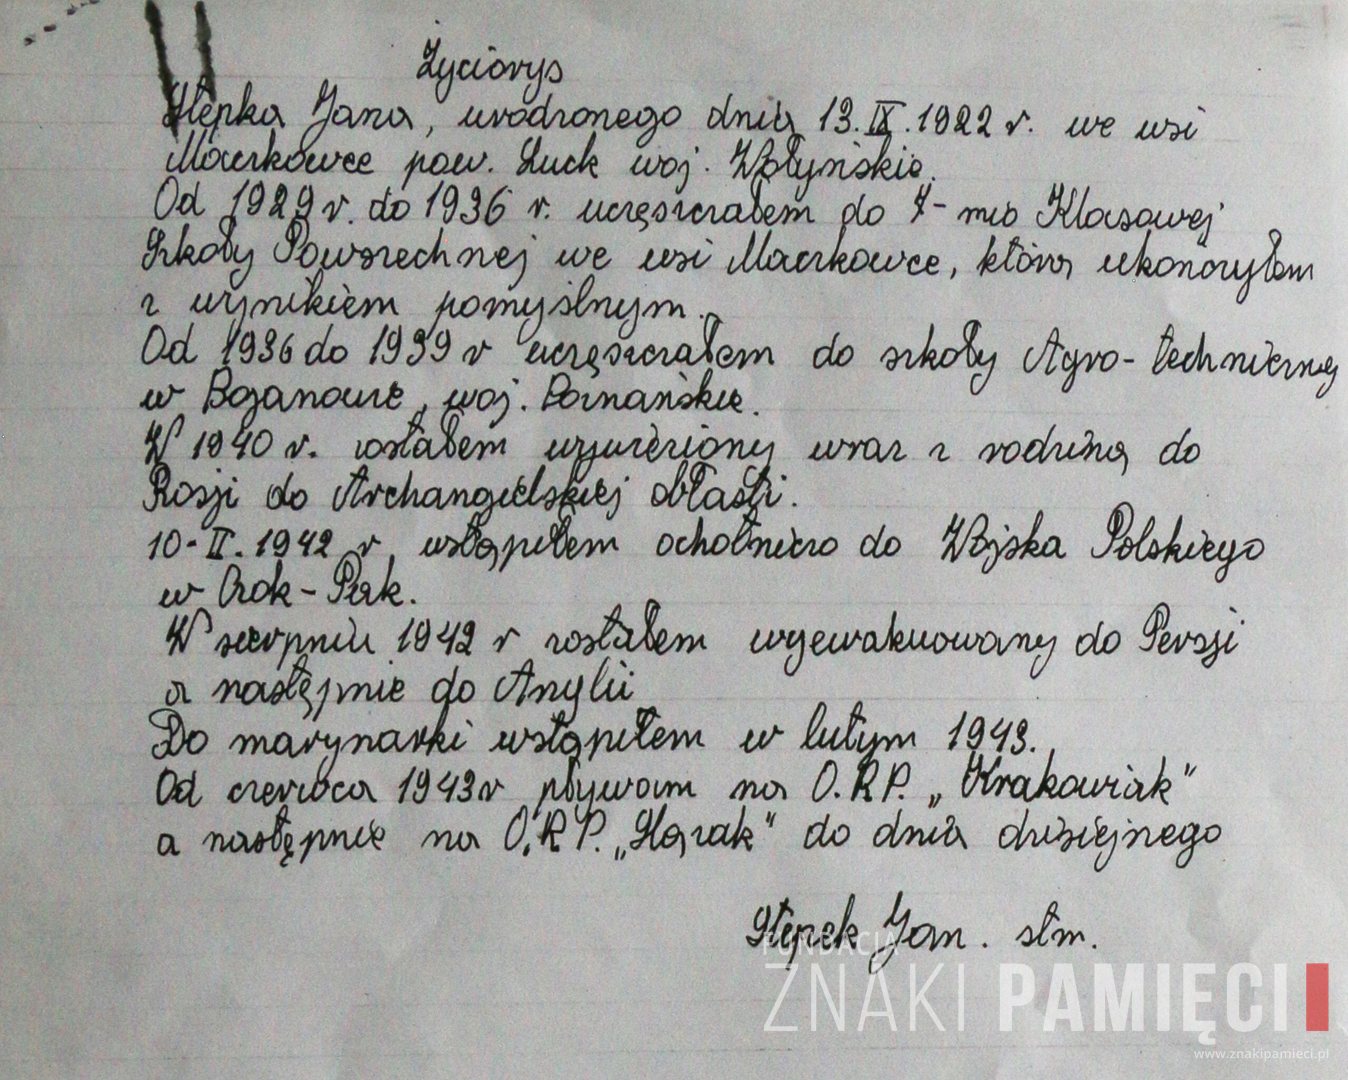 Życiorys
Stepka Jana, urodzonego dnia 13.IX.1922 r. we wsi
Maczkowce pow. Łuck woj. Wołyńskie.
Od 1929 r. do 1936 r. uczęszczałem do 7-mio Klasowej
Szkoły Powszechnej we wsi Maczkowce, którą ukończyłem
z wynikiem pomyślnym.
Od 1936 do 1939 r uczęszczałem do szkoły Agro-technicznej
w Bojanowie, woj. Poznańskie.
W 1940 r. zostałem wywieziony wraz z rodziną do
Rosji do Archangielskiej obłasti.
10-II.1942 r. wstąpiłem ochotniczo do Wojska Polskiego
w Czok-Pak.
W sierpniu 1942 r zostałem wyewakuowany do Persji
a następnie do Anglii
Do marynarki wstąpiłem w lutym 1943.
Od czerwca 1943 r pływam na O.R.P. „Krakowiak"
a następnie na O.R.P. „Ślązak" do dnia dzisiejszego
Stepek Jan. stm.
FUNDACJA
ZNAKI PAMIĘCI
www.znakipamieci.pl